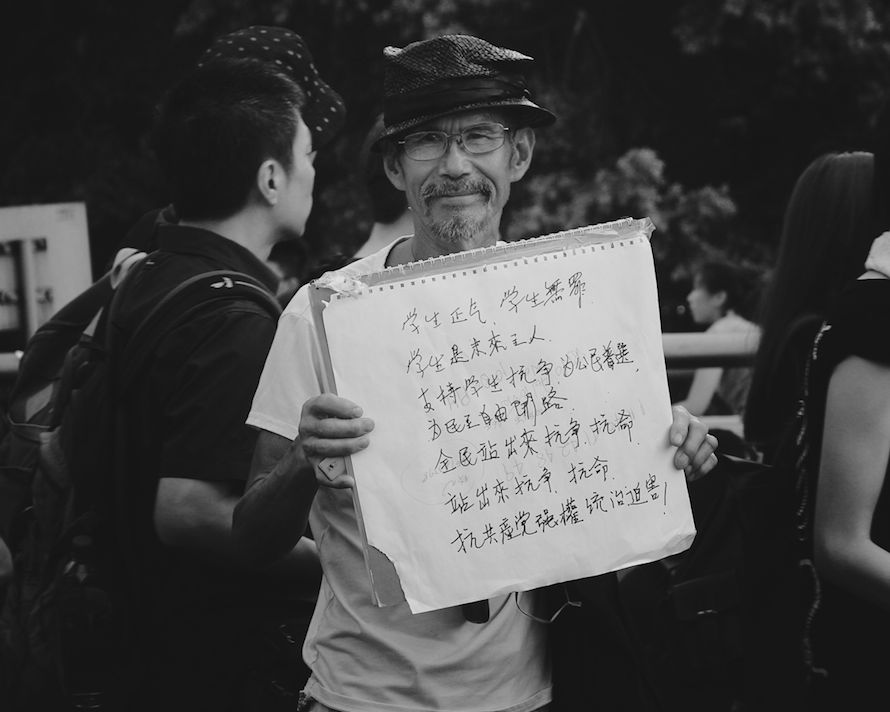 学生正气，学生無罪.
学生是未來主人.
支持学生抗争,为公民普選.
为民主自由開路.
全民站出來抗争,抗命.
站出來抗争,抗命.
抗共產党强權统治迫害!